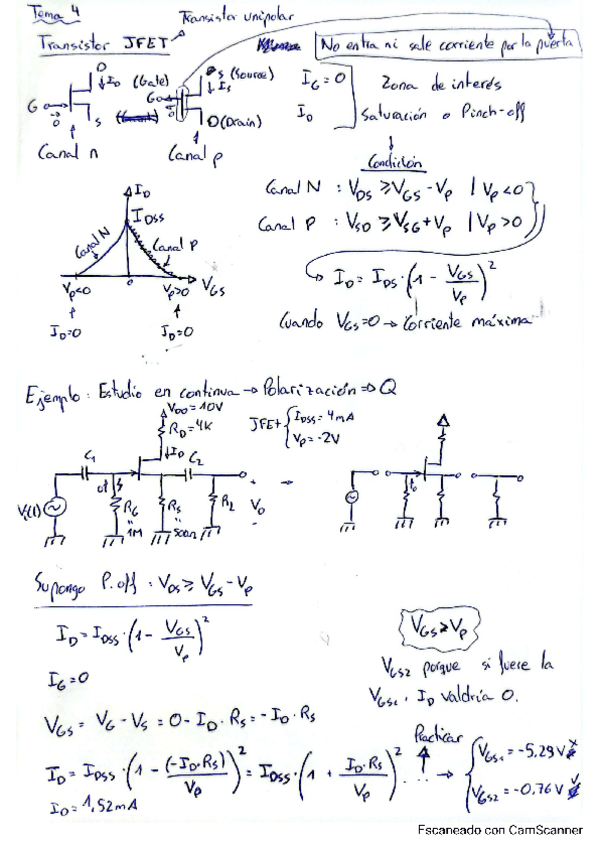 Tema 4
Transistor unipolar
Transistor JFET
No entra ni sale corriente por la puerta
D
↓ I_D (Gate)
G
0
S
Canal n
S (Source)
↓ I_S
G
0
D (Drain)
Canal p
I_G = 0
I_D
Zona de interés
Saturación o Pinch-off
Condición
Canal N : V_DS ≥ V_GS - V_P | V_P < 0
Canal P : V_SD ≥ V_SG + V_P | V_P > 0
I_D = I_DS · (1 - V_GS/V_P)^2
Cuando V_GS = 0 → Corriente máxima
I_D
I_DSS
Canal N
Canal P
V_P<0
0
V_P>0
V_GS
I_D=0
I_D=0
Ejemplo: Estudio en continua → Polarización ⇒ Q
V_DD = 10V
R_D = 4K
JFET { I_DSS = 4mA
V_P = -2V
↓ I_D
C_1
C_2
V_i(t)
R_G
1M
R_S
500Ω
R_L
+
V_o
-
Supongo P.off : V_DS ≥ V_GS - V_P
I_D = I_DSS · (1 - V_GS/V_P)^2
I_G = 0
V_GS = V_G - V_S = 0 - I_D · R_S = - I_D · R_S
V_GS ≥ V_P
V_GS2 porque si fuese la
V_GS1, I_D valdría 0.
Practicar
I_D = I_DSS · (1 - (-I_D·R_S)/V_P)^2 = I_DSS · (1 + I_D·R_S/V_P)^2 ... → { V_GS1 = -5.29V x
V_GS2 = -0,76V ✓
I_D = 1,52mA
Escaneado con CamScanner